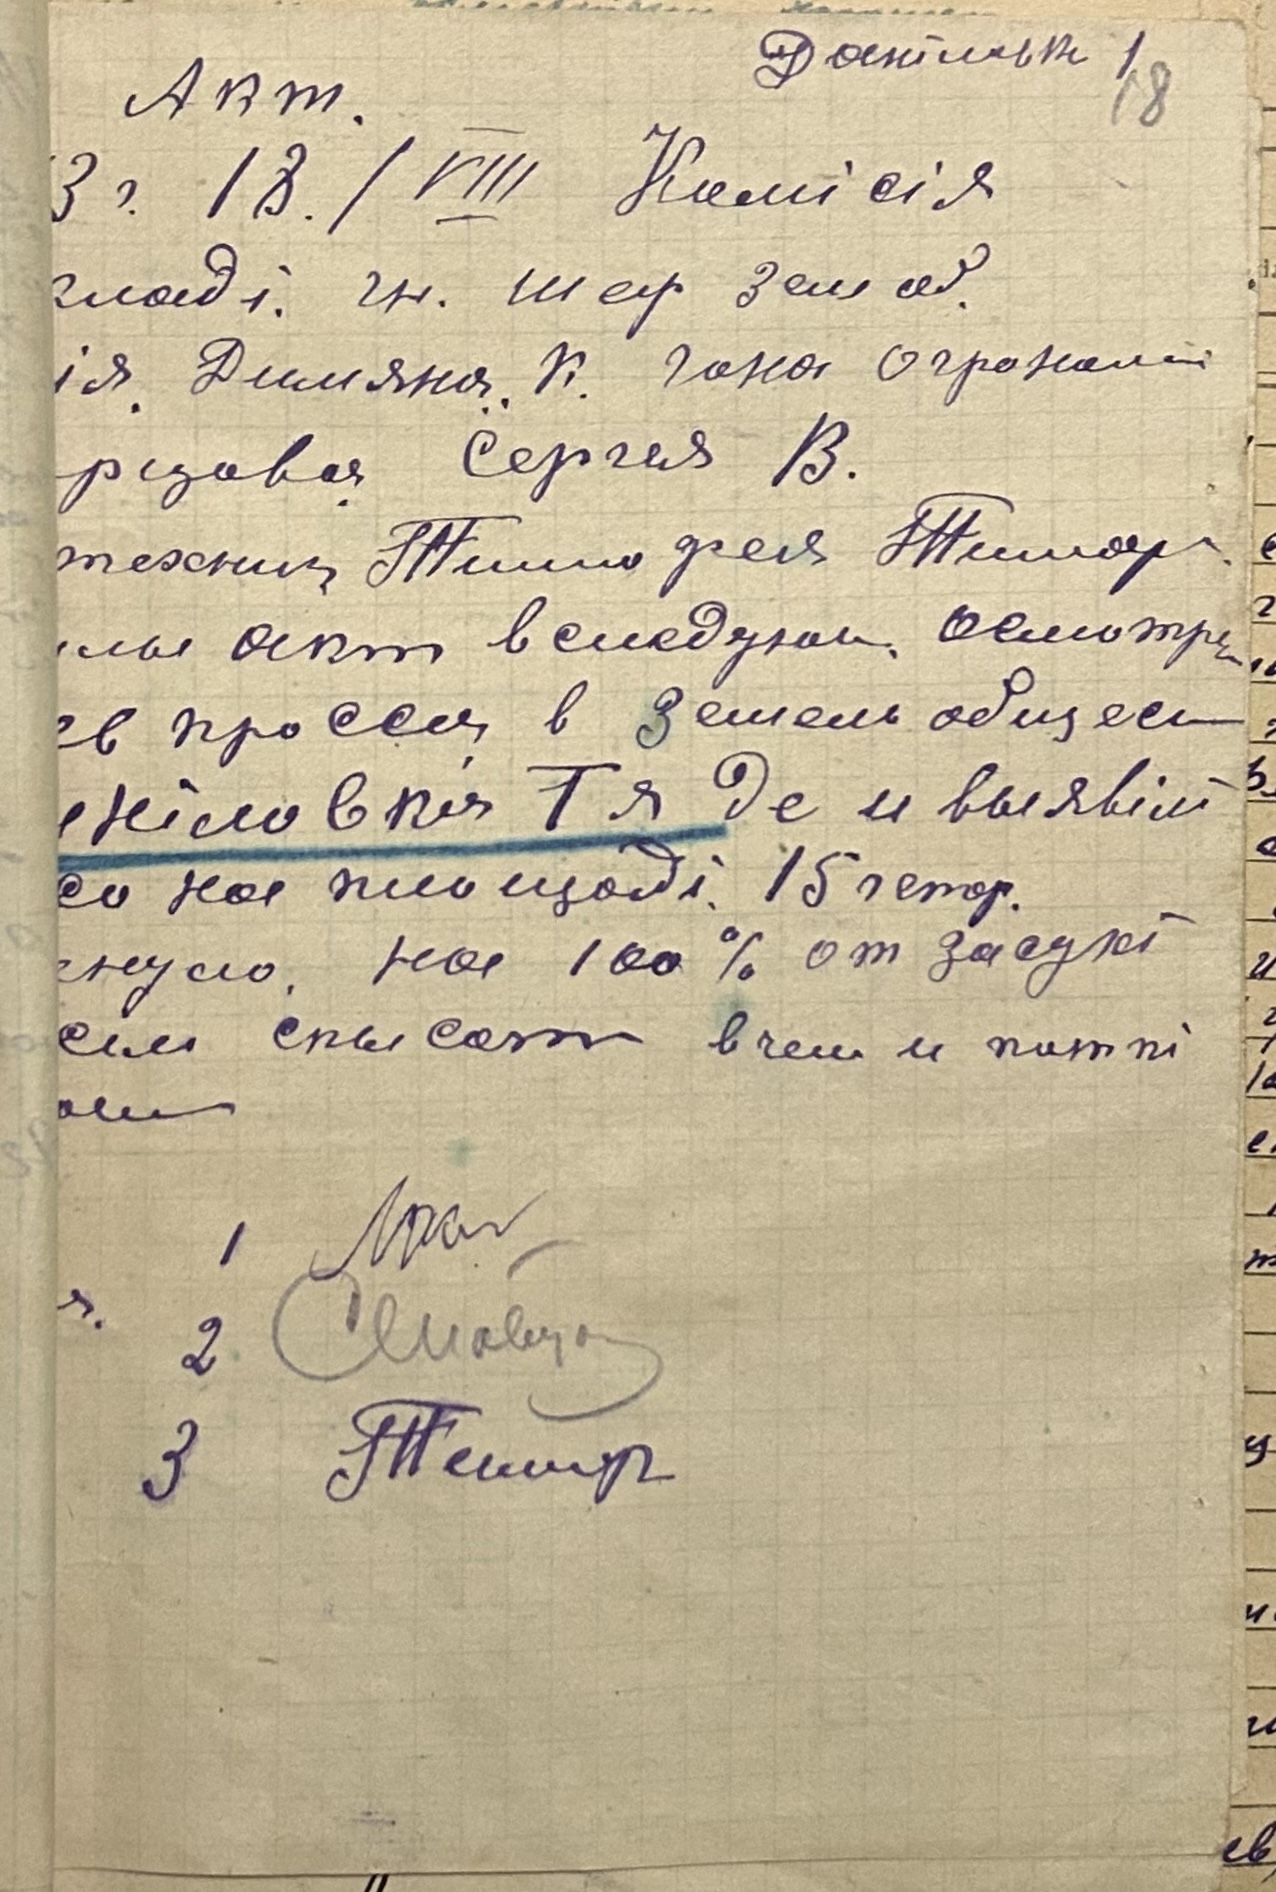 Даніловк 1
18
Акт.
3 г. 18./VIII Комісія
кладі. гн. шар земоб.
ія. Димяна. К. гана огроном
рцовая Сергея В.
техниц Тимофея Тимор.
илы акт вследующ. осмотре
ев просса в земель общест
нiловкія Тя Де и выявіл
со на площаді. 15 гектар.
гнуло. на 100% от засухі
сим списат в чем и потпі
аем
1
я. 2
3 Тимор